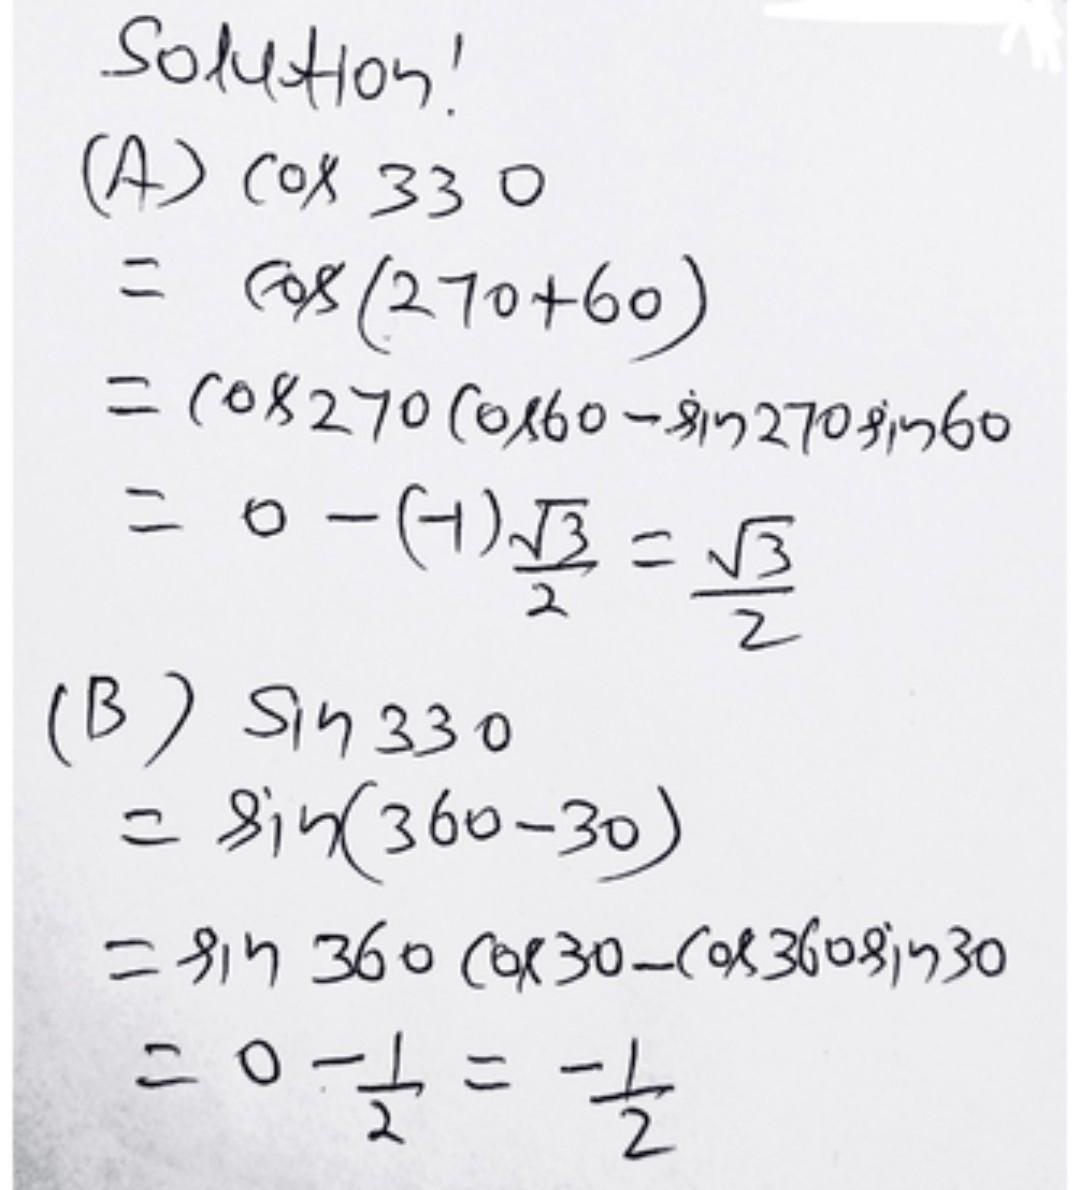 Solution!
(A) cos 330
= cos(270+60)
= cos270 cos60 - sin270 sin60
= 0 - (-1) √3/2 = √3/2
(B) Sin 330
= sin(360-30)
= sin 360 cos30 - cos360 sin30
= 0 - 1/2 = -1/2